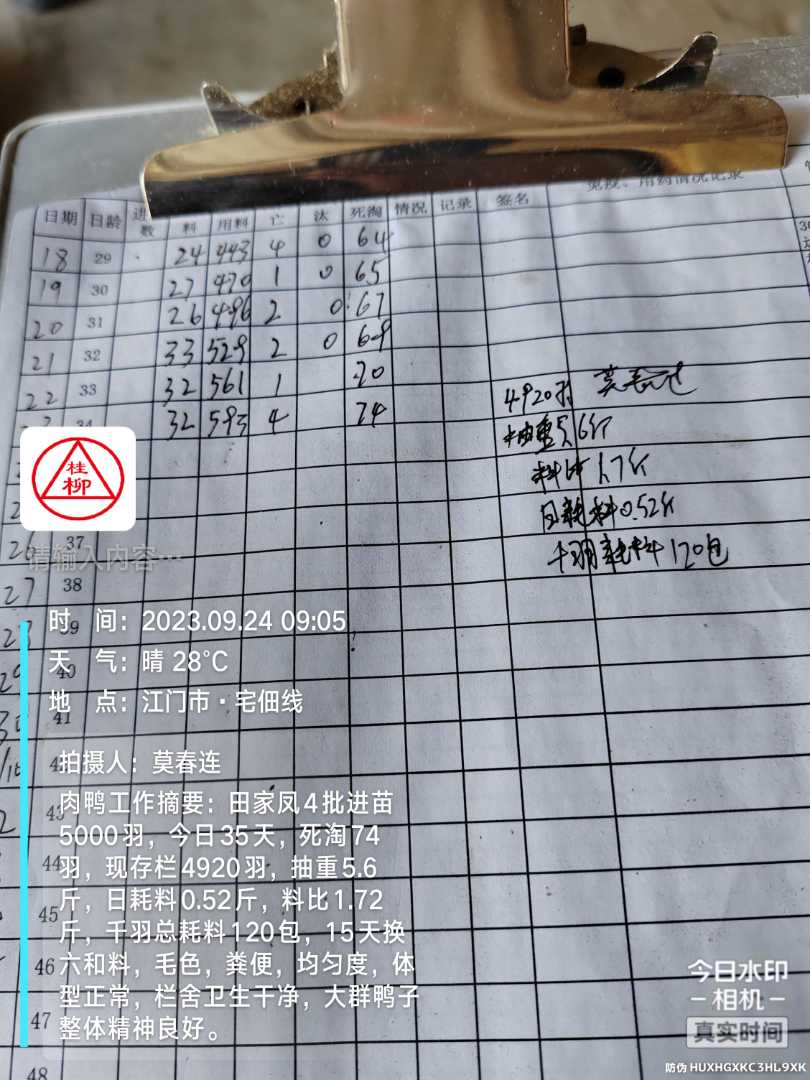 免疫、用药情况记录
日期 日龄 进数 料 用料 亡 汰 死淘 情况 记录 签名
18 29 24 443 4 0 64
19 30 27 470 1 0 65
20 31 26 496 2 0 67
21 32 33 529 2 0 69
22 33 32 561 1 70
34 32 593 4 74
4920羽
抽重5.6斤
料比1.7斤
日耗料0.52斤
千羽耗料120包
桂
柳
26 37
请输入内容…
27 38
28 39
时 间：2023.09.24 09:05
天 气：晴 28℃
29 40
地 点：江门市·宅佃线
30 41
拍摄人：莫春连
肉鸭工作摘要：田家凤4批进苗
43
5000羽，今日35天，死淘74
44
羽，现存栏4920羽，抽重5.6
45
斤，日耗料0.52斤，料比1.72
斤，千羽总耗料120包，15天换
46
六和料，毛色，粪便，均匀度，体
型正常，栏舍卫生干净，大群鸭子
47
整体精神良好。
48
今日水印
相机
真实时间
防伪 HUXHGXKC3HL9XK